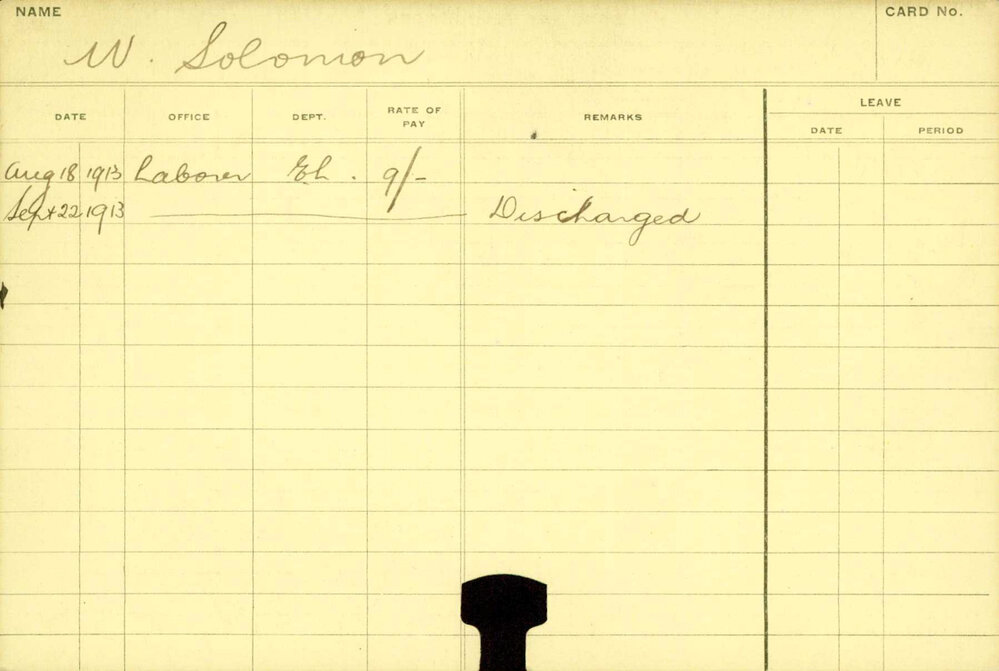 NAME CARD No.
W. Solomon
LEAVE
DATE OFFICE DEPT. RATE OF PAY REMARKS DATE PERIOD
Aug 18 1913 Laborer El. 9/-
Sept 22 1913 Discharged